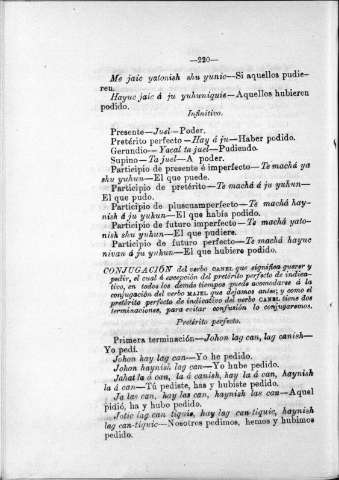 —220—
Me jaic yatonish shu yunic—Si aquellos pudie-
ren.
Hayuc jaic á ju yuhuniquis—Aquellos hubieren
podido.
Infinitivo.
Presente—Juel—Poder.
Pretérito perfecto—Hay á ju—Haber podido.
Gerundio—Yacal ta juel—Pudiendo.
Supino—Ta juel—A poder.
Participio de presente é imperfecto—Te machá ya
shu yuhun—El que puede.
Participio de pretérito—Te machá á ju yuhun—
El que pudo.
Participio de pluscuamperfecto—Te machá hay-
nish á ju yuhun—El que habia podido.
Participio de futuro imperfecto—Te machá yato-
nish shu yuhun—El que pudiere.
Participio de futuro perfecto—Te machá hayuc
nivan á ju yuhun—El que hubiere podido.
CONJUGACIÓN del verbo CANEL que significa querer y
pedir, el cual á excepción del pretérito perfecto de indica-
tivo, en todos los demás tiempos puede acomodarse á la
conjugación del verbo MAJEL que dejamos antes; y como el
pretérito perfecto de indicativo del verbo CANEL tiene dos
terminaciones, para evitar confusión lo conjugaremos.
Pretérito perfecto.
Primera terminación—Johon lag can, lag canish—
Yo pedí.
Johon hay lag can—Yo he pedido.
Johon haynish lag can—Yo hube pedido.
Jahat la á can, la á canish, hay la á can, haynish
la á can—Tú pediste, has y hubiste pedido.
Ja las can, hay las can, haynish las can—Aquel
pidió, ha y hubo pedido.
Jotic lag can tiquic, hay lag can-tiquic, haynish
lag can-tiquic—Nosotros pedimos, hemos y hubimos
pedido.